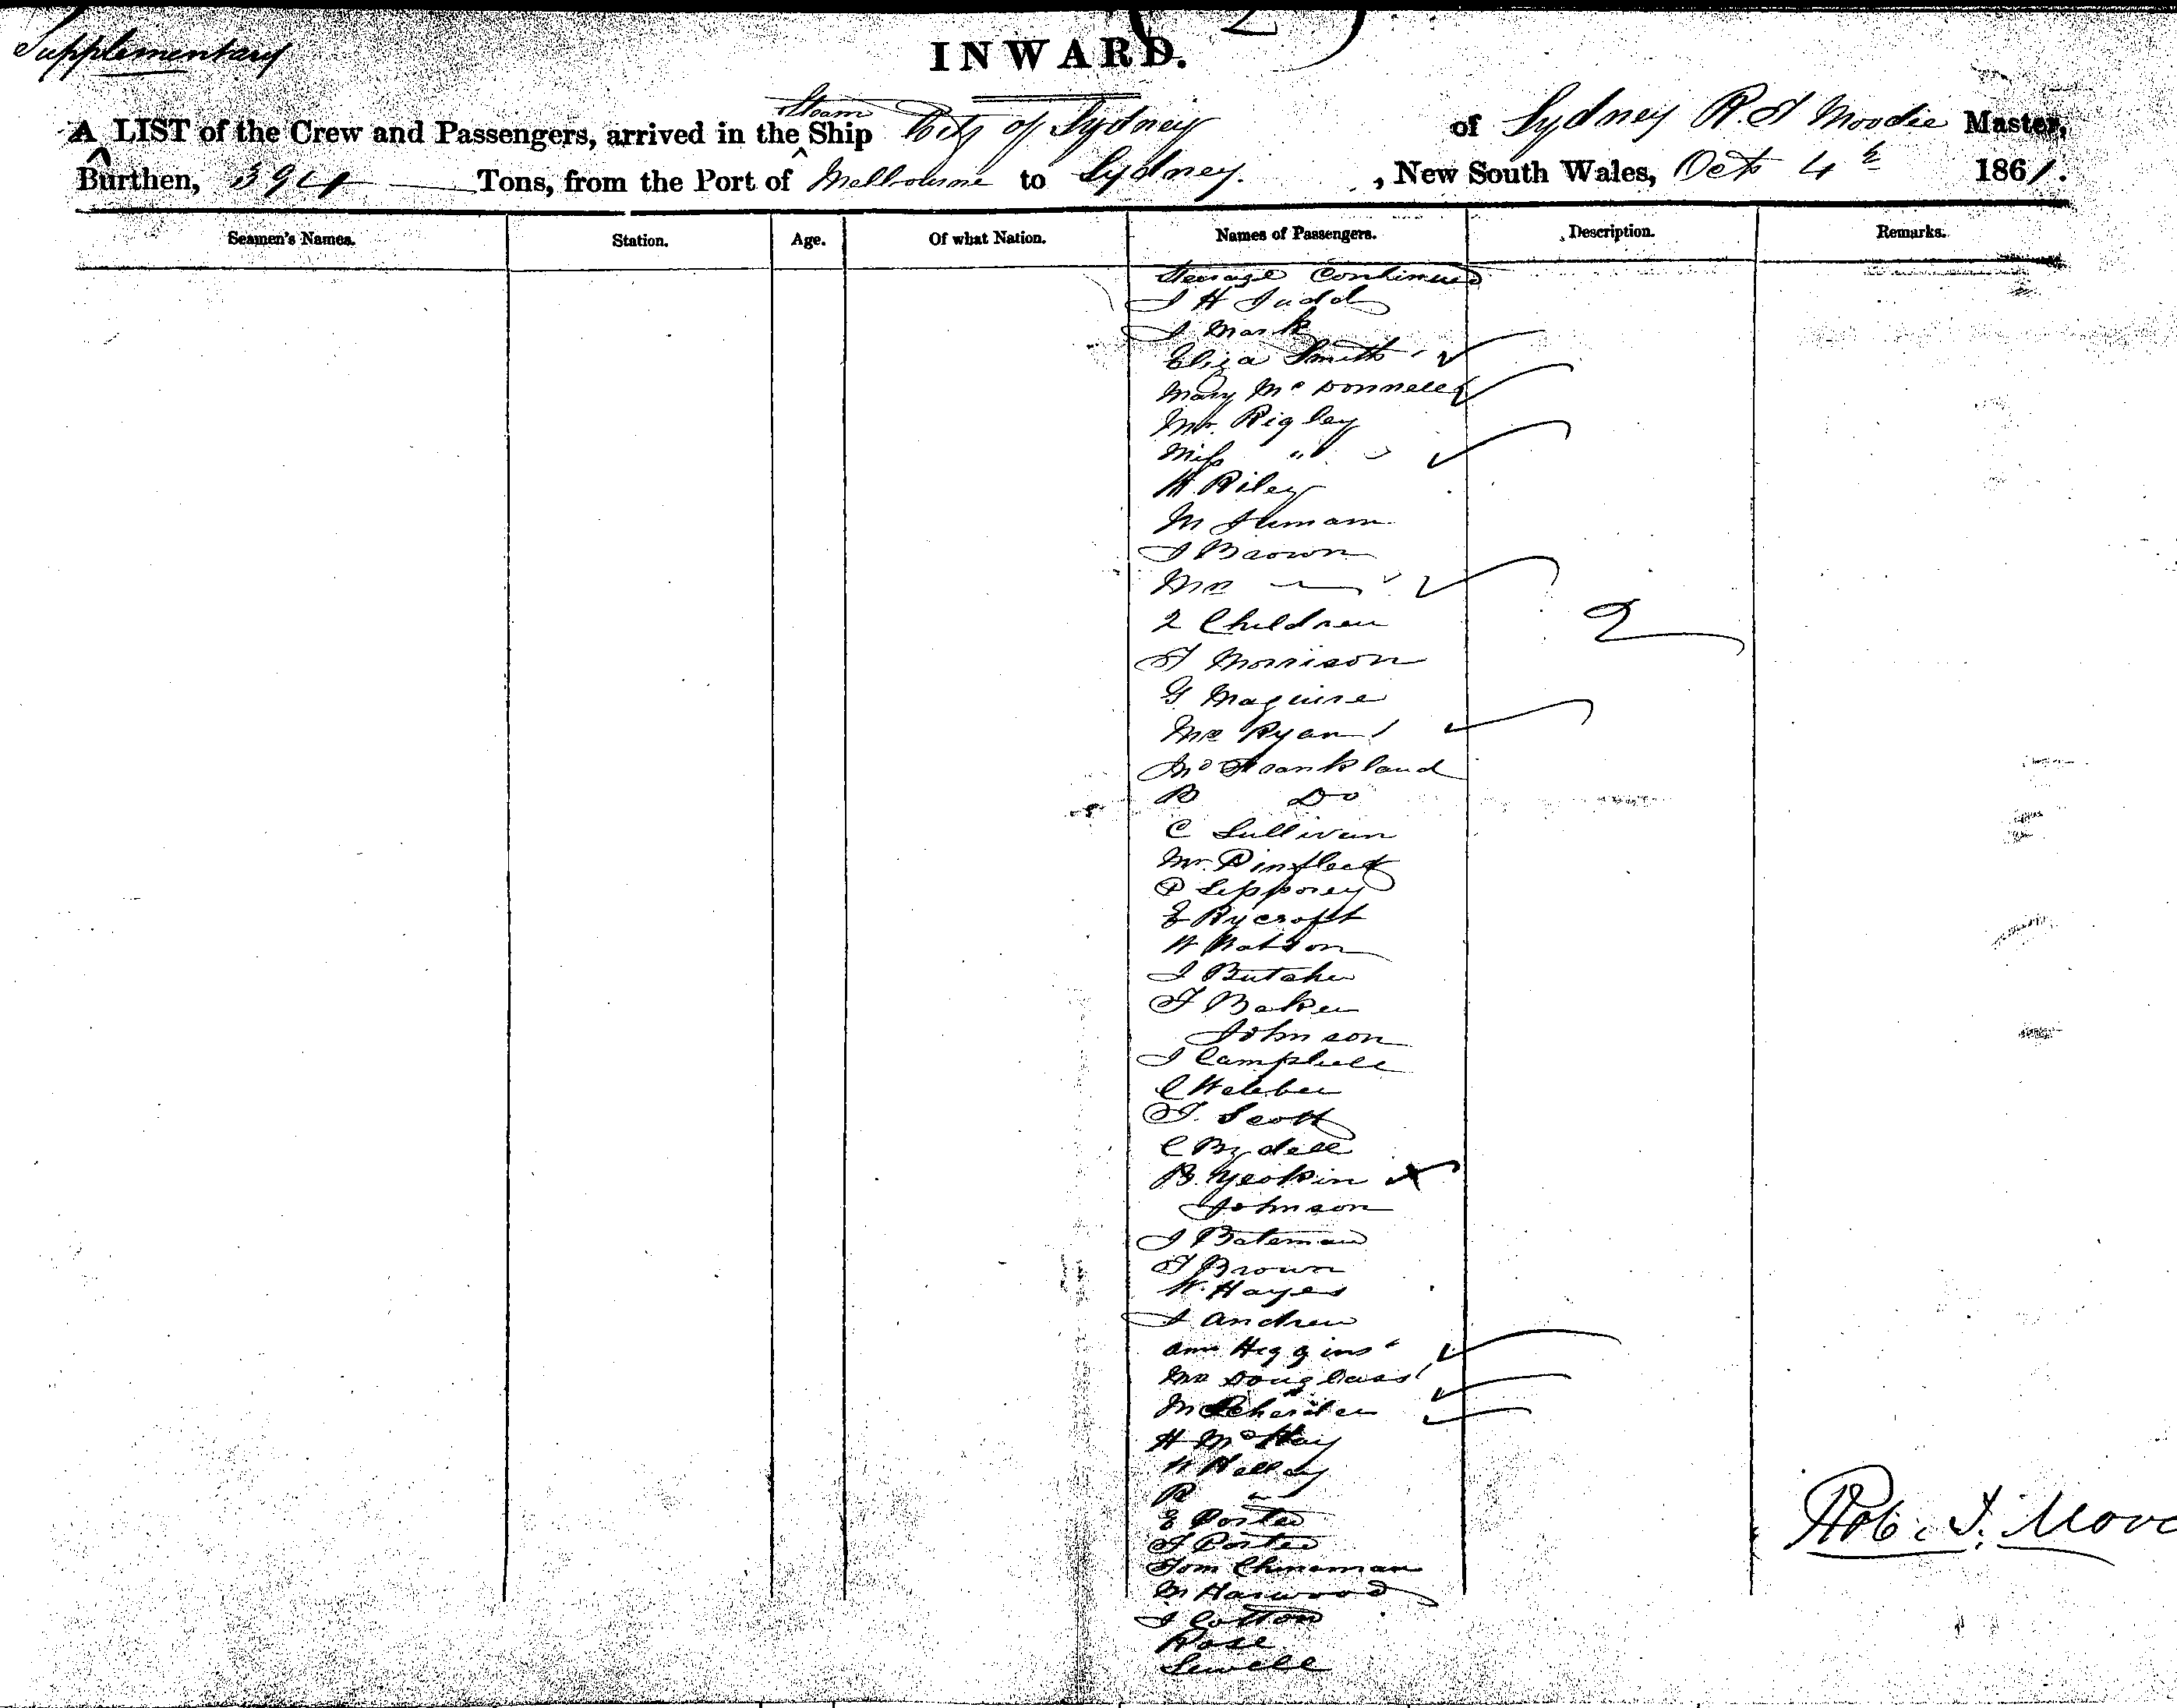 (2)
Supplementary
INWARD.
A LIST of the Crew and Passengers, arrived in the Steam Ship City of Sydney of Sydney R. T Moodie Master,
Burthen, 394 Tons, from the Port of Melbourne to Sydney. , New South Wales, Oct 4th 1861.
Seamen's Names. Station. Age. Of what Nation. Names of Passengers. Description. Remarks.
Steerage Continued
J H Judd
J Mark
Eliza Smith
Mary McDonnell
Mr. Rigley
Miss "
W. Riley
M
J Brown
Mrs —
2 Children 2
T Morrison
G Maguire
Mrs Ryan
Frankland
B Do
C Sullivan
Mr.
P
E Rycroft
W Watson
J Butcher
F Baker
Johnson
J Campbell
C Webber
T. Scott
C
B.
Johnson
J Bateman
T Brown
W. Hayes
J Andrew
Ann Higgins
Mrs Douglass
M
H McKay
W
R "
E Porter
F Porter
Tom Chinaman
M Harwood
J Cotton
Rose
Sewell
Rob. T. Mood